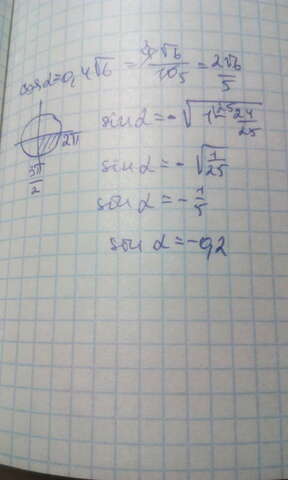 cosα=0,4√6 = 4√6/10 5 = 2√6/5
sin α = -√(1²⁵ - 24/25)
2π
3π/2
sin α = -√(1/25)
sin α = -1/5
sin α = -0,2